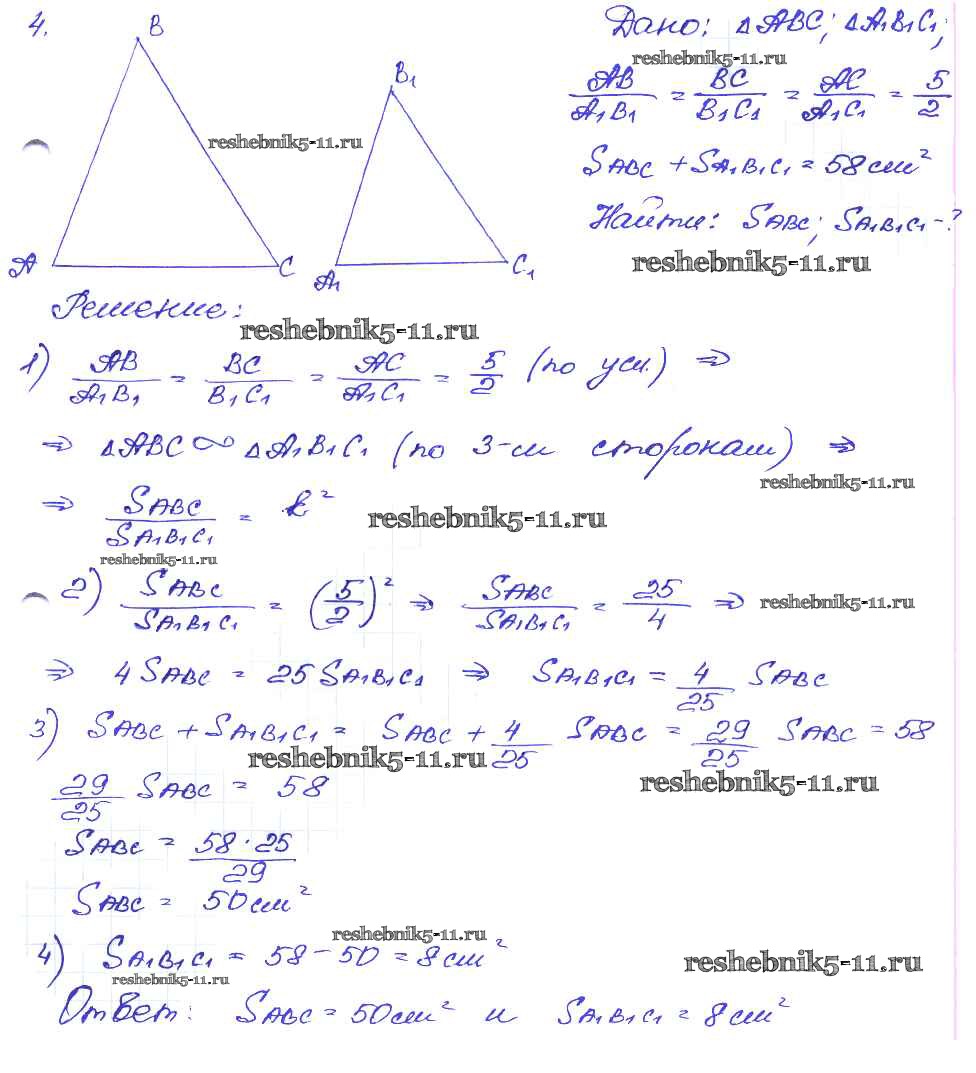 4.
B
B₁
A
C
A₁
C₁
Дано: △ABC; △A₁B₁C₁;
AB/A₁B₁ = BC/B₁C₁ = AC/A₁C₁ = 5/2
S ABC + S A₁B₁C₁ = 58 см²
Найти: S ABC; S A₁B₁C₁ - ?
reshebnik5-11.ru
reshebnik5-11.ru
reshebnik5-11.ru
Решение:
reshebnik5-11.ru
1) AB/A₁B₁ = BC/B₁C₁ = AC/A₁C₁ = 5/2 (по усл.) ⇒
⇒ △ABC ∞ △A₁B₁C₁ (по 3-м сторонам) ⇒
reshebnik5-11.ru
⇒ S ABC/S A₁B₁C₁ = k²
reshebnik5-11.ru
reshebnik5-11.ru
2) S ABC/S A₁B₁C₁ = (5/2)² ⇒ S ABC/S A₁B₁C₁ = 25/4 ⇒
reshebnik5-11.ru
⇒ 4 S ABC = 25 S A₁B₁C₁ ⇒ S A₁B₁C₁ = 4/25 S ABC
3) S ABC + S A₁B₁C₁ = S ABC + 4/25 S ABC = 29/25 S ABC = 58
reshebnik5-11.ru
reshebnik5-11.ru
29/25 S ABC = 58
S ABC = 58 · 25/29
S ABC = 50 см²
reshebnik5-11.ru
4) S A₁B₁C₁ = 58 - 50 = 8 см²
reshebnik5-11.ru
reshebnik5-11.ru
Ответ: S ABC = 50 см² и S A₁B₁C₁ = 8 см²